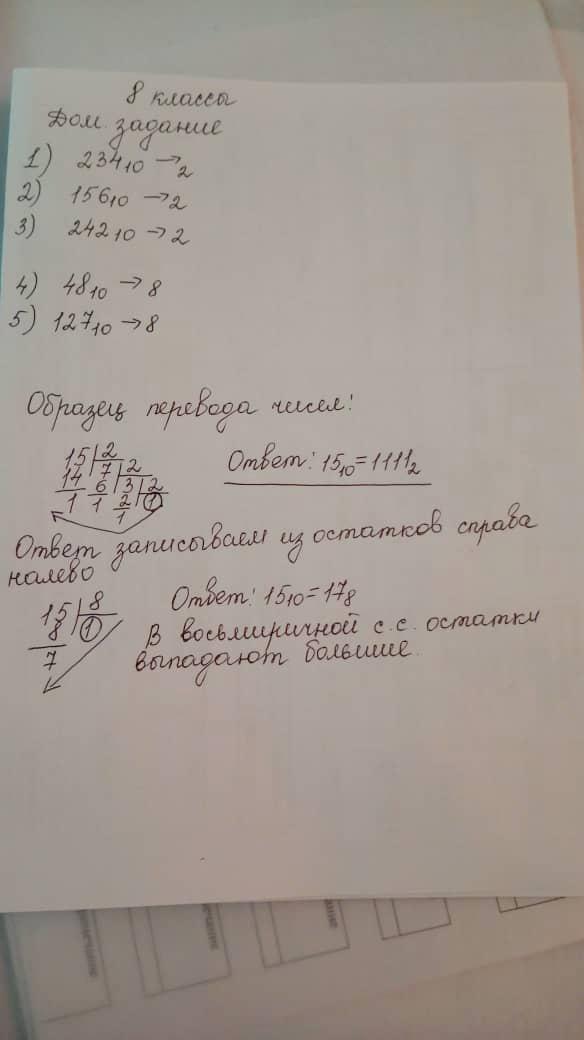 8 классы
Дом. задание
1) 234₁₀ → ₂
2) 156₁₀ → ₂
3) 242₁₀ → ₂
4) 48₁₀ → 8
5) 127₁₀ → 8
Образец перевода чисел!
15 2
14 7 2
1 6 3 2
1 2 1
1
Ответ: 15₁₀ = 1111₂
Ответ записываем из остатков справа
налево
15 8
8 1
7
Ответ: 15₁₀ = 17₈
В восьмиричной с.с. остатки
выпадают большие.